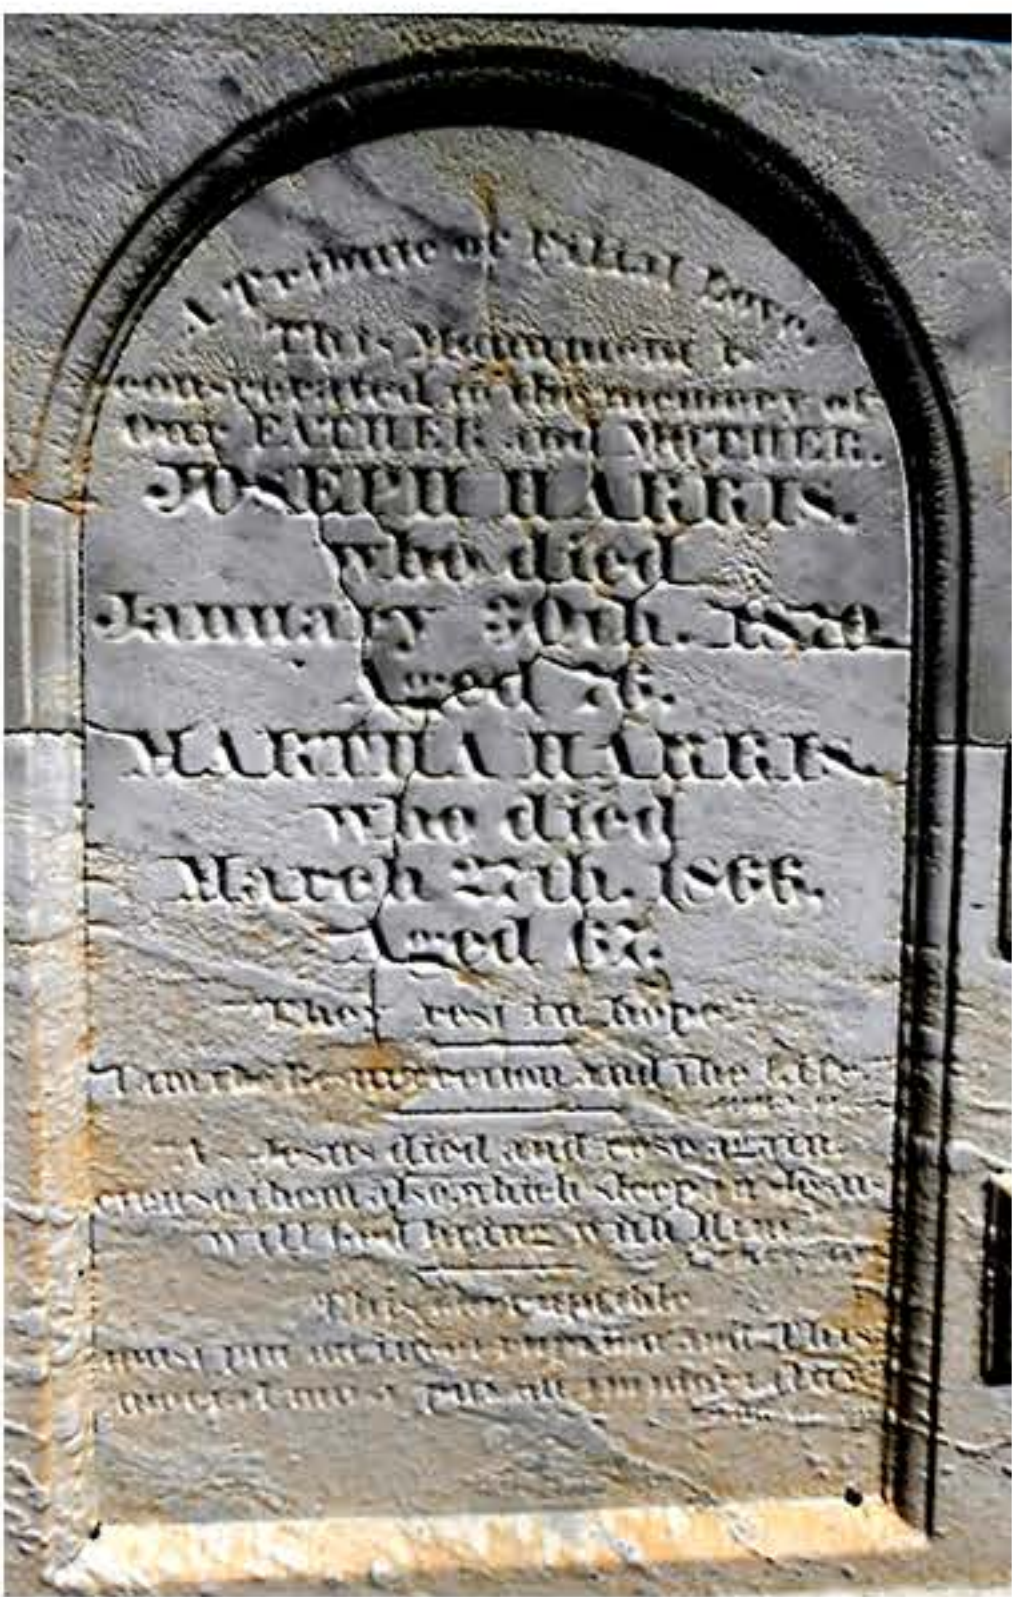 A Tribute of Filial Love.
This Monument is
consecrated to the memory of
Our FATHER and MOTHER.
JOSEPH HARRIS.
who died
January 30th. 1870.
Aged 76.
MARTHA HARRIS.
who died
March 27th. 1866.
Aged 67.
"They rest in hope"
"I am the Resurrection and the Life."
As Jesus died and rose again.
even so them also which sleep in Jesus
will God bring with Him
This corruptible
must put on incorruption and This
mortal must put on immortality"